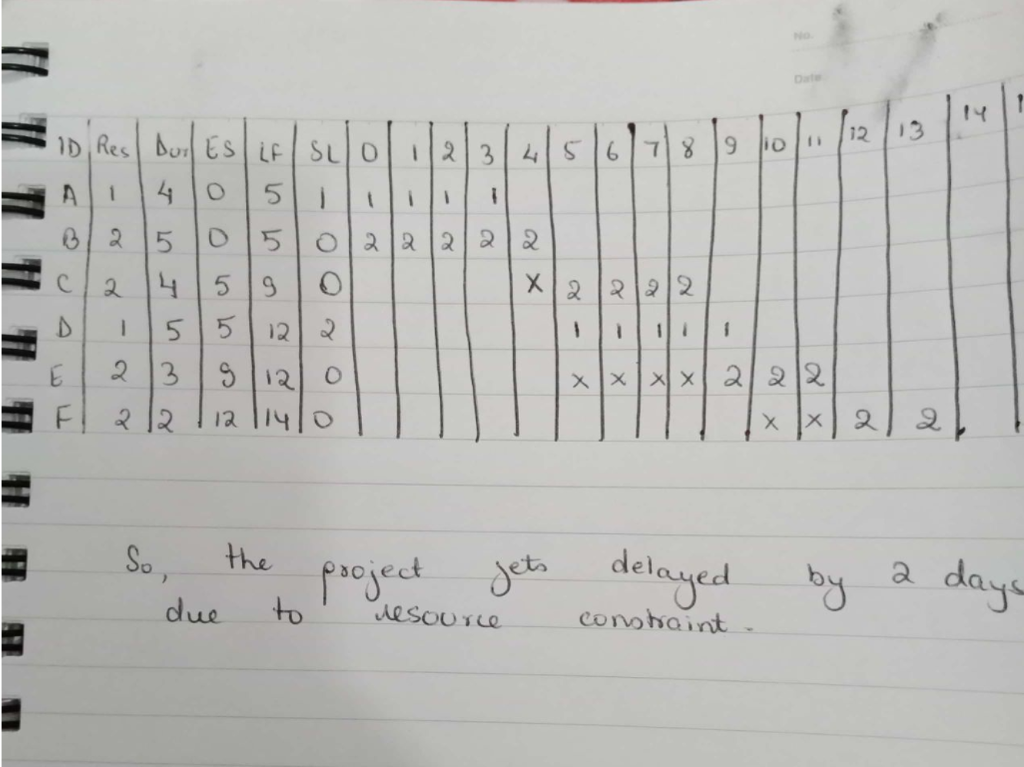 No.
Date
ID Res Dur ES LF SL 0 1 2 3 4 5 6 7 8 9 10 11 12 13 14 1
A 1 4 0 5 1 1 1 1 1
B 2 5 0 5 0 2 2 2 2 2
C 2 4 5 9 0 x 2 2 2 2
D 1 5 5 12 2 1 1 1 1 1
E 2 3 9 12 0 x x x x 2 2 2
F 2 2 12 14 0 x x 2 2
So, the project gets delayed by 2 days
due to resource constraint.